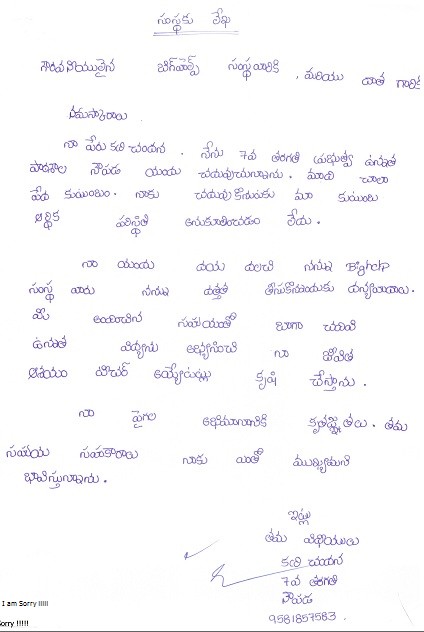 సంస్థకు లేఖ
గౌరవనీయులైన బిగ్‌హెల్ప్ సంస్థవారికి , మరియు దాత గారికి
నమస్కారాలు
నా పేరు కలి చందన . నేను 7వ తరగతి ప్రభుత్వ ఉన్నత
పాఠశాల నౌపడ యందు చదువుచున్నాను . మాది చాలా
పేద కుటుంబం . నాకు చదువుకొనుటకు మా కుటుంబ
ఆర్థిక పరిస్థితి అనుకూలించడం లేదు .
నా యందు దయ దలచి నన్ను Bighelp
సంస్థ వారు నన్ను దత్తత తీసుకొనినందుకు ధన్యవాదాలు .
మీ అందించిన సహాయంతో బాగా చదివి
ఉన్నత విద్యను అభ్యసించి నా జీవిత
ఆశయం టీచర్ అయ్యేటట్లు కృషి చేస్తాను .
నా పైగల అభిమానానికి కృతజ్ఞతలు . తమ
సహాయ సహకారాలు నాకు ఎంతో ముఖ్యమని
భావిస్తున్నాను .
ఇట్లు
తమ విధేయులు
కలి చందన
7వ తరగతి
నౌపడ
9581857583 .
I am Sorry !!!!!
Sorry !!!!!